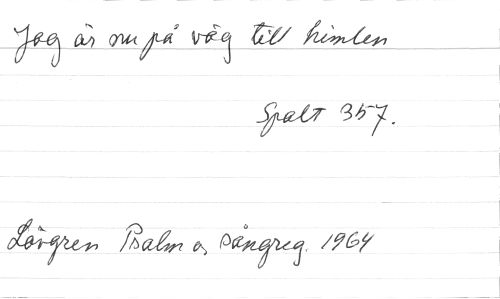 Jag är nu på väg till himlen
Spalt 357.
Lövgren Psalm o sångreg. 1964